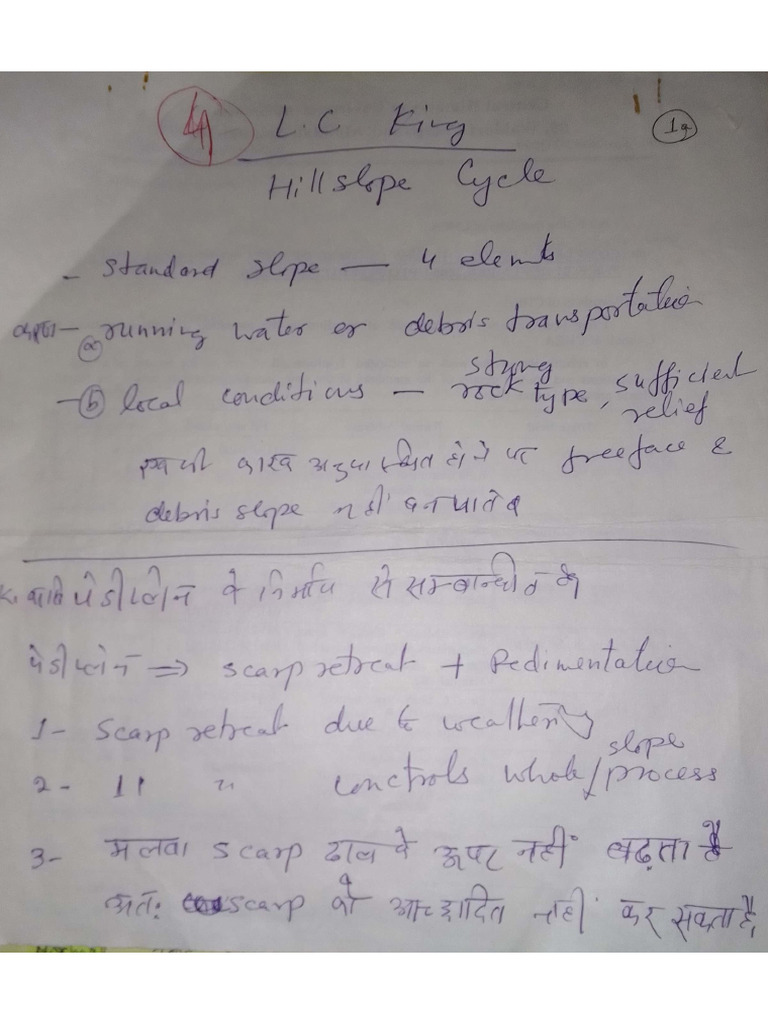 4
L.C King
19
Hillslope Cycle
- Standard slope — 4 elements
- (a) running water or debris transportation
- (b) local conditions — strong rock type, sufficient relief
freeface &
debris slope नहीं बन पाते
पेडीप्लेन के निर्माण से सम्बन्धित
पेडीप्लेन ⇒ scarp retreat + Pedimentation
1- Scarp retreat due to weathering
2- 11 " controls whole / slope process
3- मलवा scarp ढाल के ऊपर नहीं चढ़ता है
अतः scarp को आच्छादित नहीं कर सकता है,